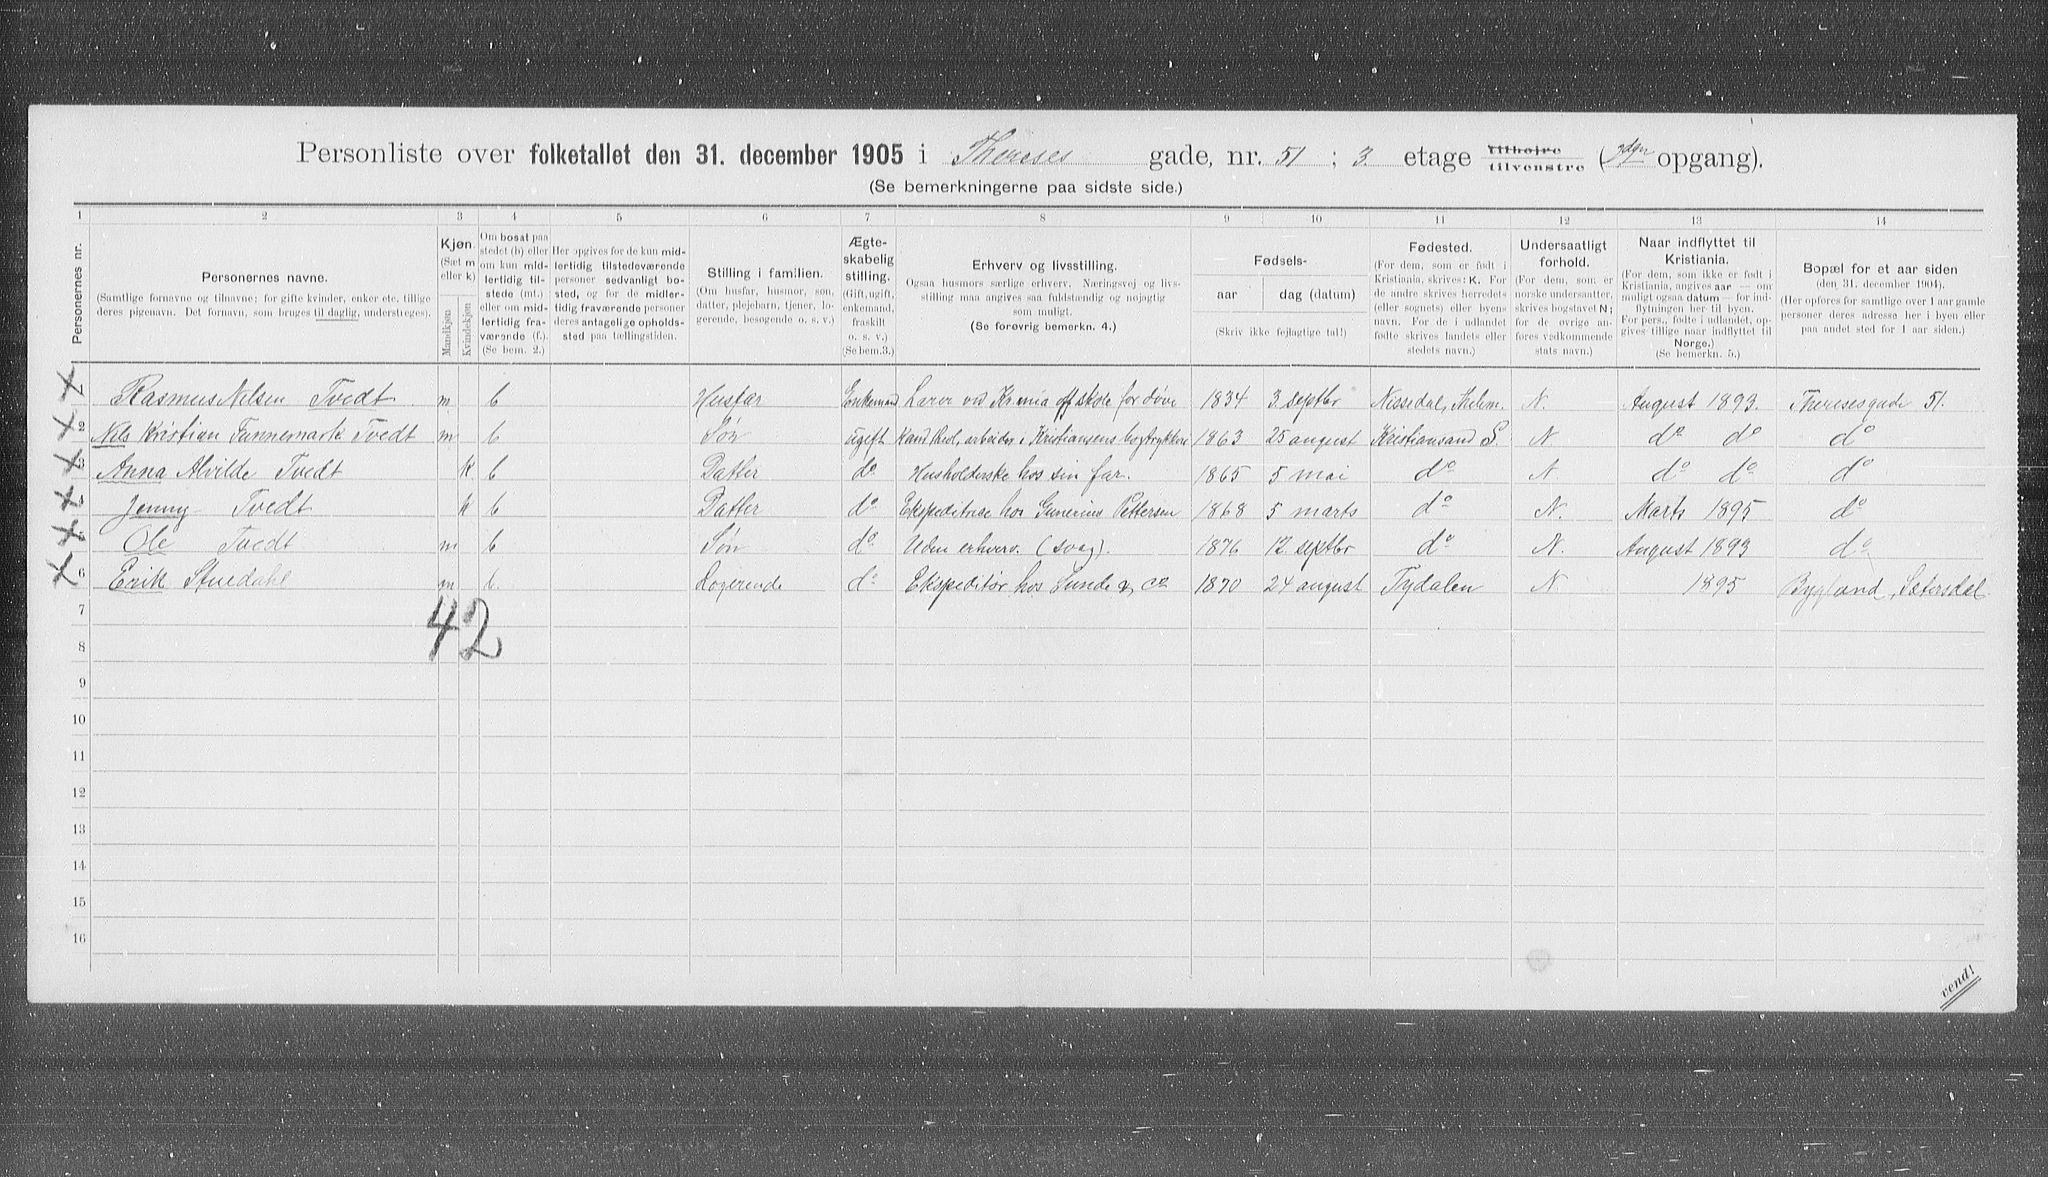 Personliste over folketallet den 31. december 1905 i Thereses gade, nr. 51 ; 3 etage tilhøire tilvenstre ( opgang).
(Se bemerkningerne paa sidste side.)
1 2 3 4 5 6 7 8 9 10 11 12 13 14
Personernes nr.
Personernes navne.
(Samtlige fornavne og tilnavne; for gifte kvinder, enker etc. tillige
deres pigenavn. Det fornavn, som bruges til daglig, understreges).
Kjøn.
(Sæt m
eller k)
Mandkjøn
Kvindekjøn
Om bosat paa
stedet (b) eller
om kun mid-
lertidig til-
stede (mt.)
eller om mid-
lertidig fra-
værende (f.).
(Se bem. 2.)
Her opgives for de kun mid-
lertidig tilstedeværende
personer sedvanligt bo-
sted, og for de midler-
tidig fraværende personer
deres antagelige opholds-
sted paa tællingstiden.
Stilling i familien.
(Om husfar, husmor, søn,
datter, plejebarn, tjener, lo-
gerende, besøgende o. s. v.)
Ægte-
skabelig
stilling.
(Gift, ugift,
enkemand,
fraskilt
o. s. v.)
(Se bem.3.)
Erhverv og livsstilling.
Ogsaa husmors særlige erhverv. Næringsvej og livs-
stilling maa angives saa fuldstændig og nøjagtig
som muligt.
(Se forøvrig bemerkn. 4.)
Fødsels-
aar dag (datum)
(Skriv ikke fejlagtige tal!)
Fødested.
(For dem, som er født i
Kristiania, skrives: K. For
de andre skrives herredets
(eller sognets) eller byens
navn. For de i udlandet
fødte skrives landets eller
stedets navn.)
Undersaatligt
forhold.
(For dem, som er
norske undersaatter,
skrives bogstavet N;
for de øvrige an-
føres vedkommende
stats navn.)
Naar indflyttet til
Kristiania.
(For dem, som ikke er født i
Kristiania, angives aar — om
muligt ogsaa datum — for ind-
flytningen her til byen.
For pers., fødte i udlandet, op-
gives tillige naar indflyttet til
Norge.)
(Se bemerkn. 5.)
Bopæl for et aar siden
(den 31. december 1904).
(Her opføres for samtlige over 1 aar gamle
personer deres adresse her i byen eller
paa andet sted for 1 aar siden.)
1 Rasmus Nilsen Tvedt m b Husfar Enkemand Lærer vid Kr.ania off skole for døve 1834 3 septbr Nissedal, Thelm. N. August 1893. Theresesgade 51.
2 Nils Kristian Funnemark Tvedt m b Søn ugift Kand. theol, arbeider i Kristiansens bogtrykkeri 1863 25 august Kristiansand S. N do do do
3 Anna Alvilde Tvedt k b Datter do Husholderske hos sin far. 1865 5 mai do N. do do do
4 Jenny Tvedt k b Datter do Ekspeditrice hos Gunerius Pettersen 1868 5 marts do N. Marts 1895 do
5 Ole Tvedt m b Søn do Uden erhverv. (svag). 1876 12 septbr do N. August 1893 do
6 Erik Stuedahl m b. Logerende do Ekspeditør hos Sunde & Co 1870 24 august Tydalen N 1895 Bygland, Sætersdal.
42
7
8
9
10
11
12
13
14
15
16
vend!